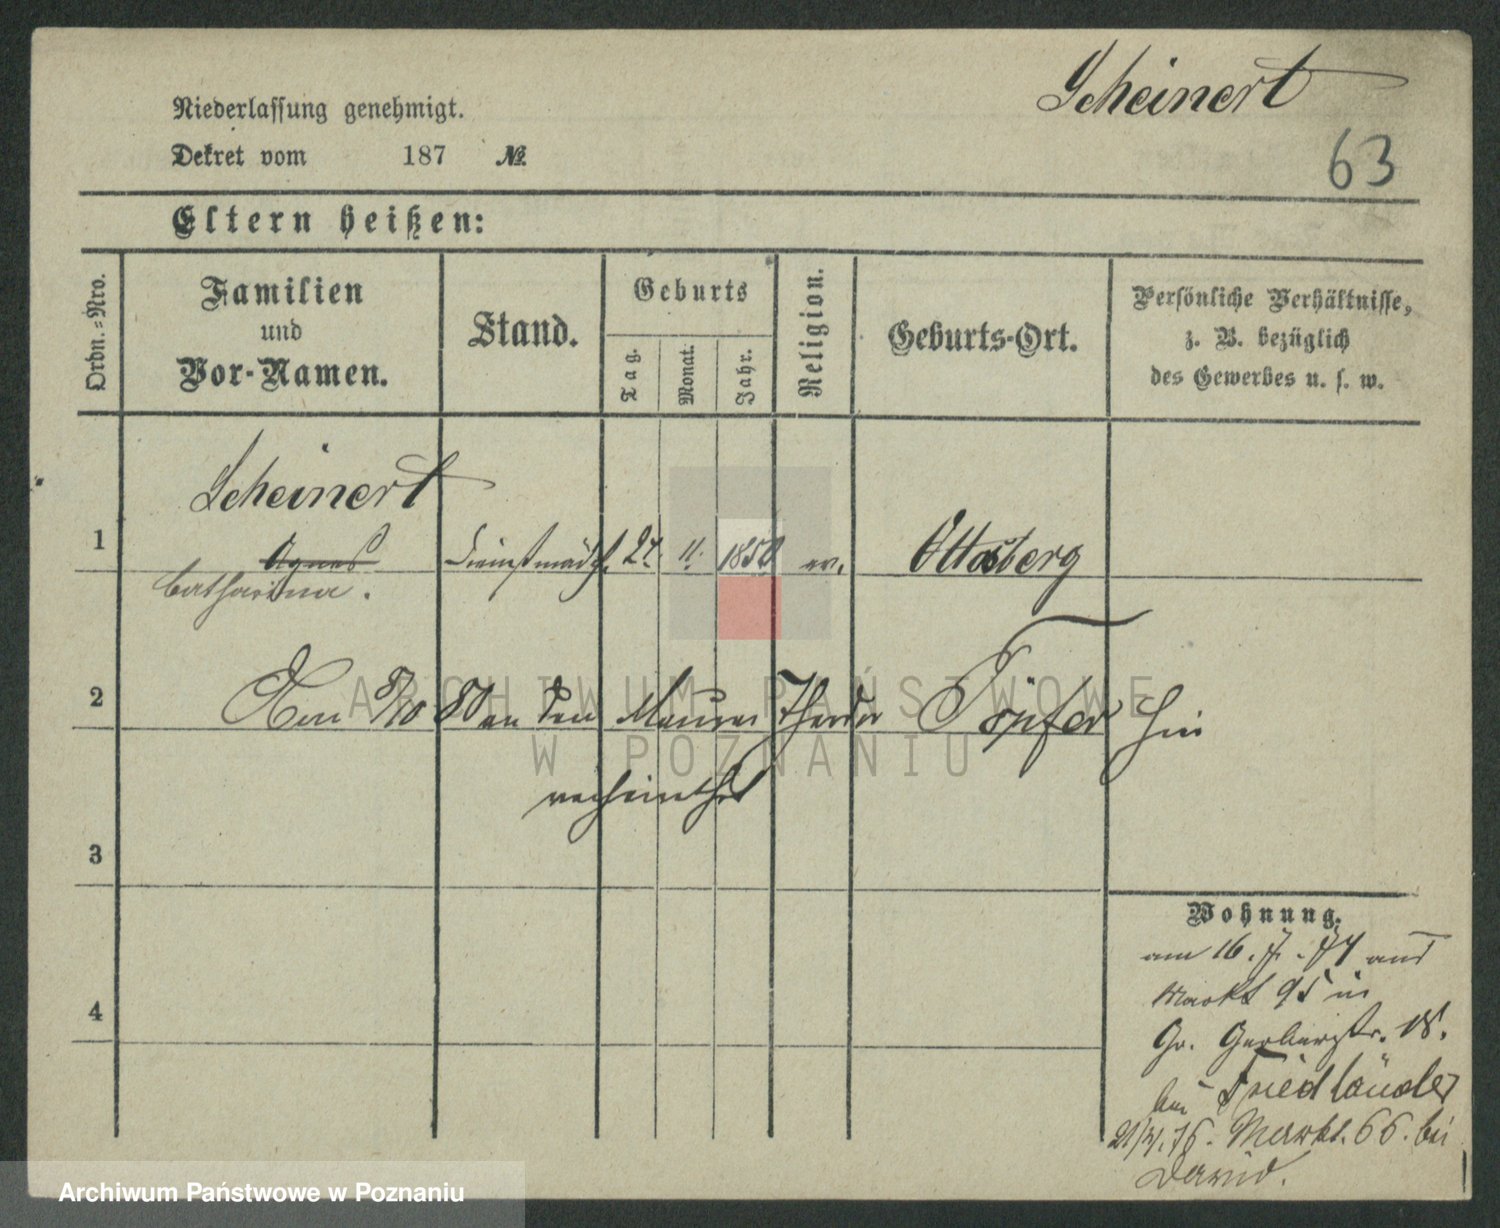 Scheinert
Niederlassung genehmigt.
63
Dekret vom 187 №
Eltern heißen:
Ordn.-Nro.
Familien
und
Vor-Namen.
Stand.
Geburts
Tag.
Monat.
Jahr.
Religion.
Geburts-Ort.
Persönliche Verhältnisse,
z. B. bezüglich
des Gewerbes u. s. w.
Scheinert
1 Agnes Dienstmädch. 24. 11. 1850 ev. Ottosberg
Catharina.
2 Den 5/10 80 an den Maurer Theodor Töpfer hin
verheirathet
3
4
Wohnung.
am 16. 7. 74 aus
Markt 95 in
Gr. Gerberstr. 18.
bei Friedländer
Markt. 66. bei
David.
ARCHIWUM PAŃSTWOWE
W POZNANIU
Archiwum Państwowe w Poznaniu